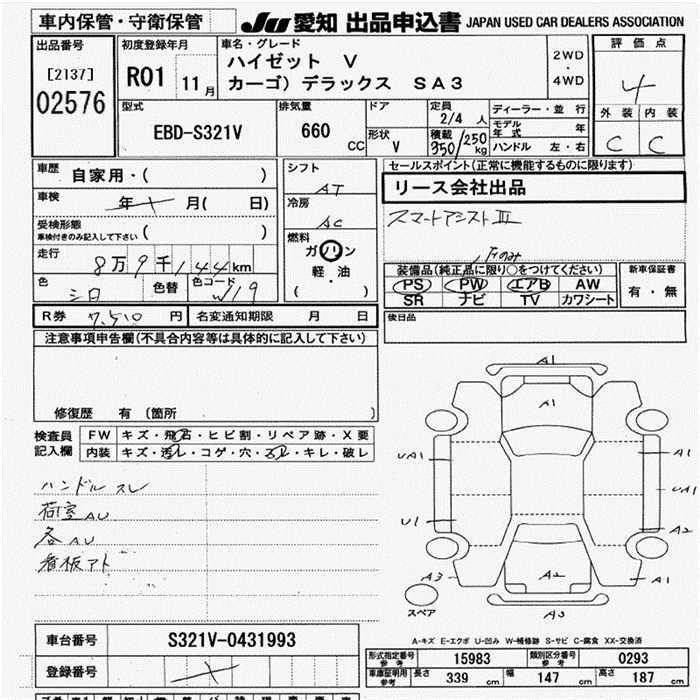 車内保管・守衛保管
JU 愛知 出品申込書 JAPAN USED CAR DEALERS ASSOCIATION
出品番号
[2137]
02576
初度登録年月
R01 11月
車名・グレード
ハイゼット V
カーゴ) デラックス SA3
2WD
・
4WD
評価点
4
外装 内装
C C
型式
EBD-S321V
排気量
660 CC
ドア
形状
V
定員
2/4 人
積載
350/250 kg
ディーラー・並行
モデル年式 年
ハンドル 左・右
車歴
自家用・( )
車検
年 月( 日)
受検形態
車検付きのみ記入して下さい ( )
走行
8万9千144km
色
シロ
色替
色コード
W19
シフト
AT
冷房
AC
燃料
ガソリン
軽・油
( )
R券 7,510 円
名変通知期限 月 日
セールスポイント(正常に機能するものに限ります)
リース会社出品
スマートアシストIII
Fのみ
装備品(純正品に限り○をつけてください)
PS PW エアB AW
SR ナビ TV カワシート
新車保証書
有・無
後日品
注意事項申告欄(不具合内容等は具体的に記入して下さい)
修復歴 有 (箇所 )
検査員記入欄
FW キズ・飛石・ヒビ割・リペア跡・X要
内装 キズ・汚レ・コゲ・穴・スレ・キレ・破レ
ハンドル スレ
荷室 AU
各 AU
看板アト
A1
A1
UA1
A1
UA1
U1
A2
A3
A2
A1
A3
スペア
A-キズ E-エクボ U-凹み W-補修跡 S-サビ C-腐食 XX-交換済
車台番号 S321V-0431993
登録番号
形式指定番号 参考 15983
類別区分番号 参考 0293
車庫証明用 参考 長さ 339 cm 幅 147 cm 高さ 187 cm